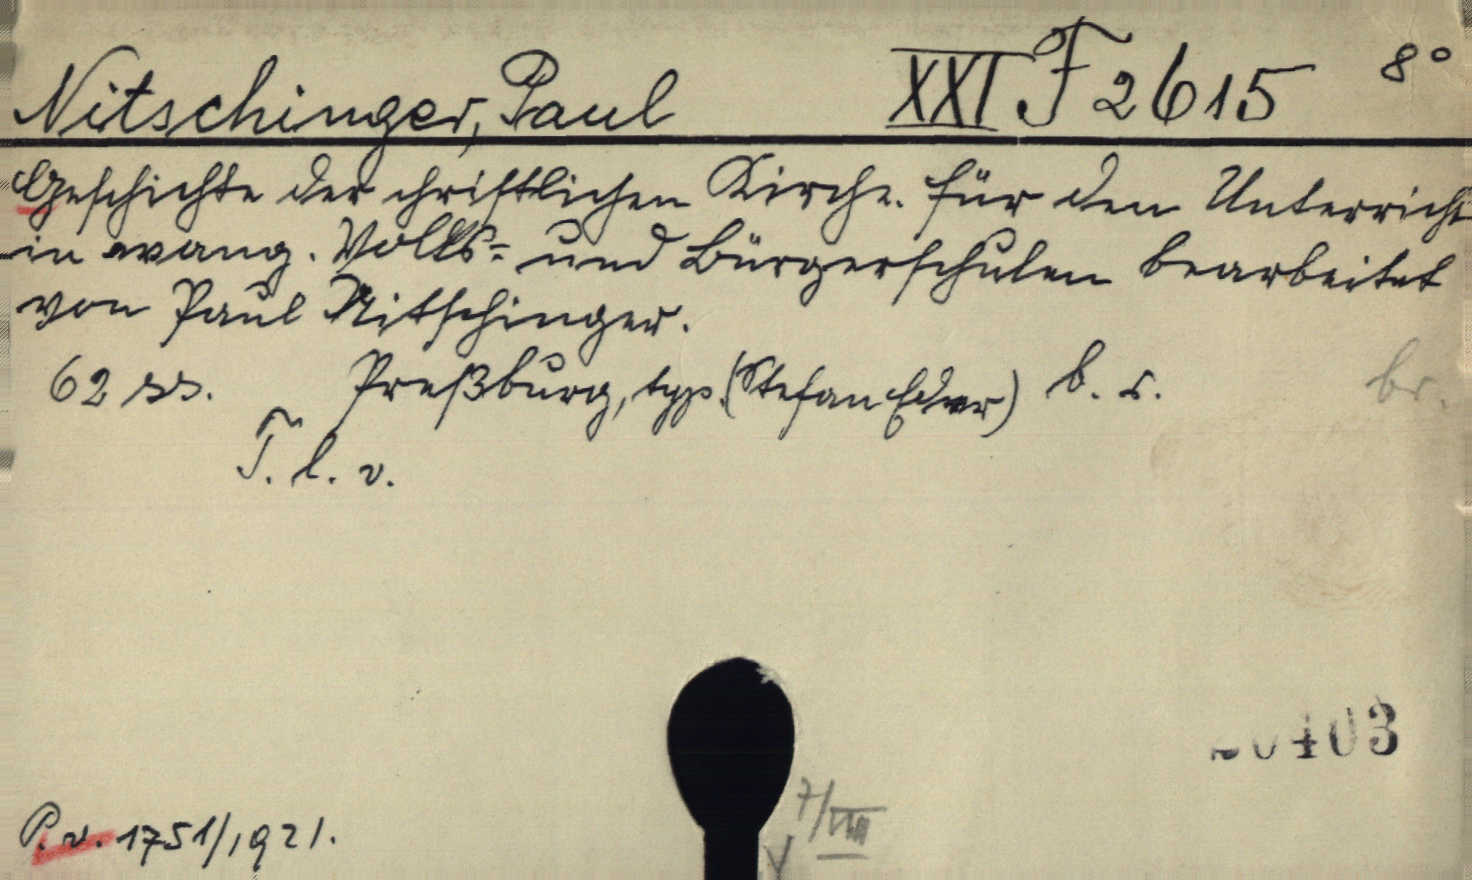 Nitschinger, Paul XXI F 2615 8°
Geschichte der christlichen Kirche. für den Unterricht
in evang. Volks= und Bürgerschulen bearbeitet
von Paul Nitschinger.
62 ss. Preßburg, typ. (Stefan Eder) b. r. br.
T. l. v.
20403
P. v. 1751/1921.
7/VIII